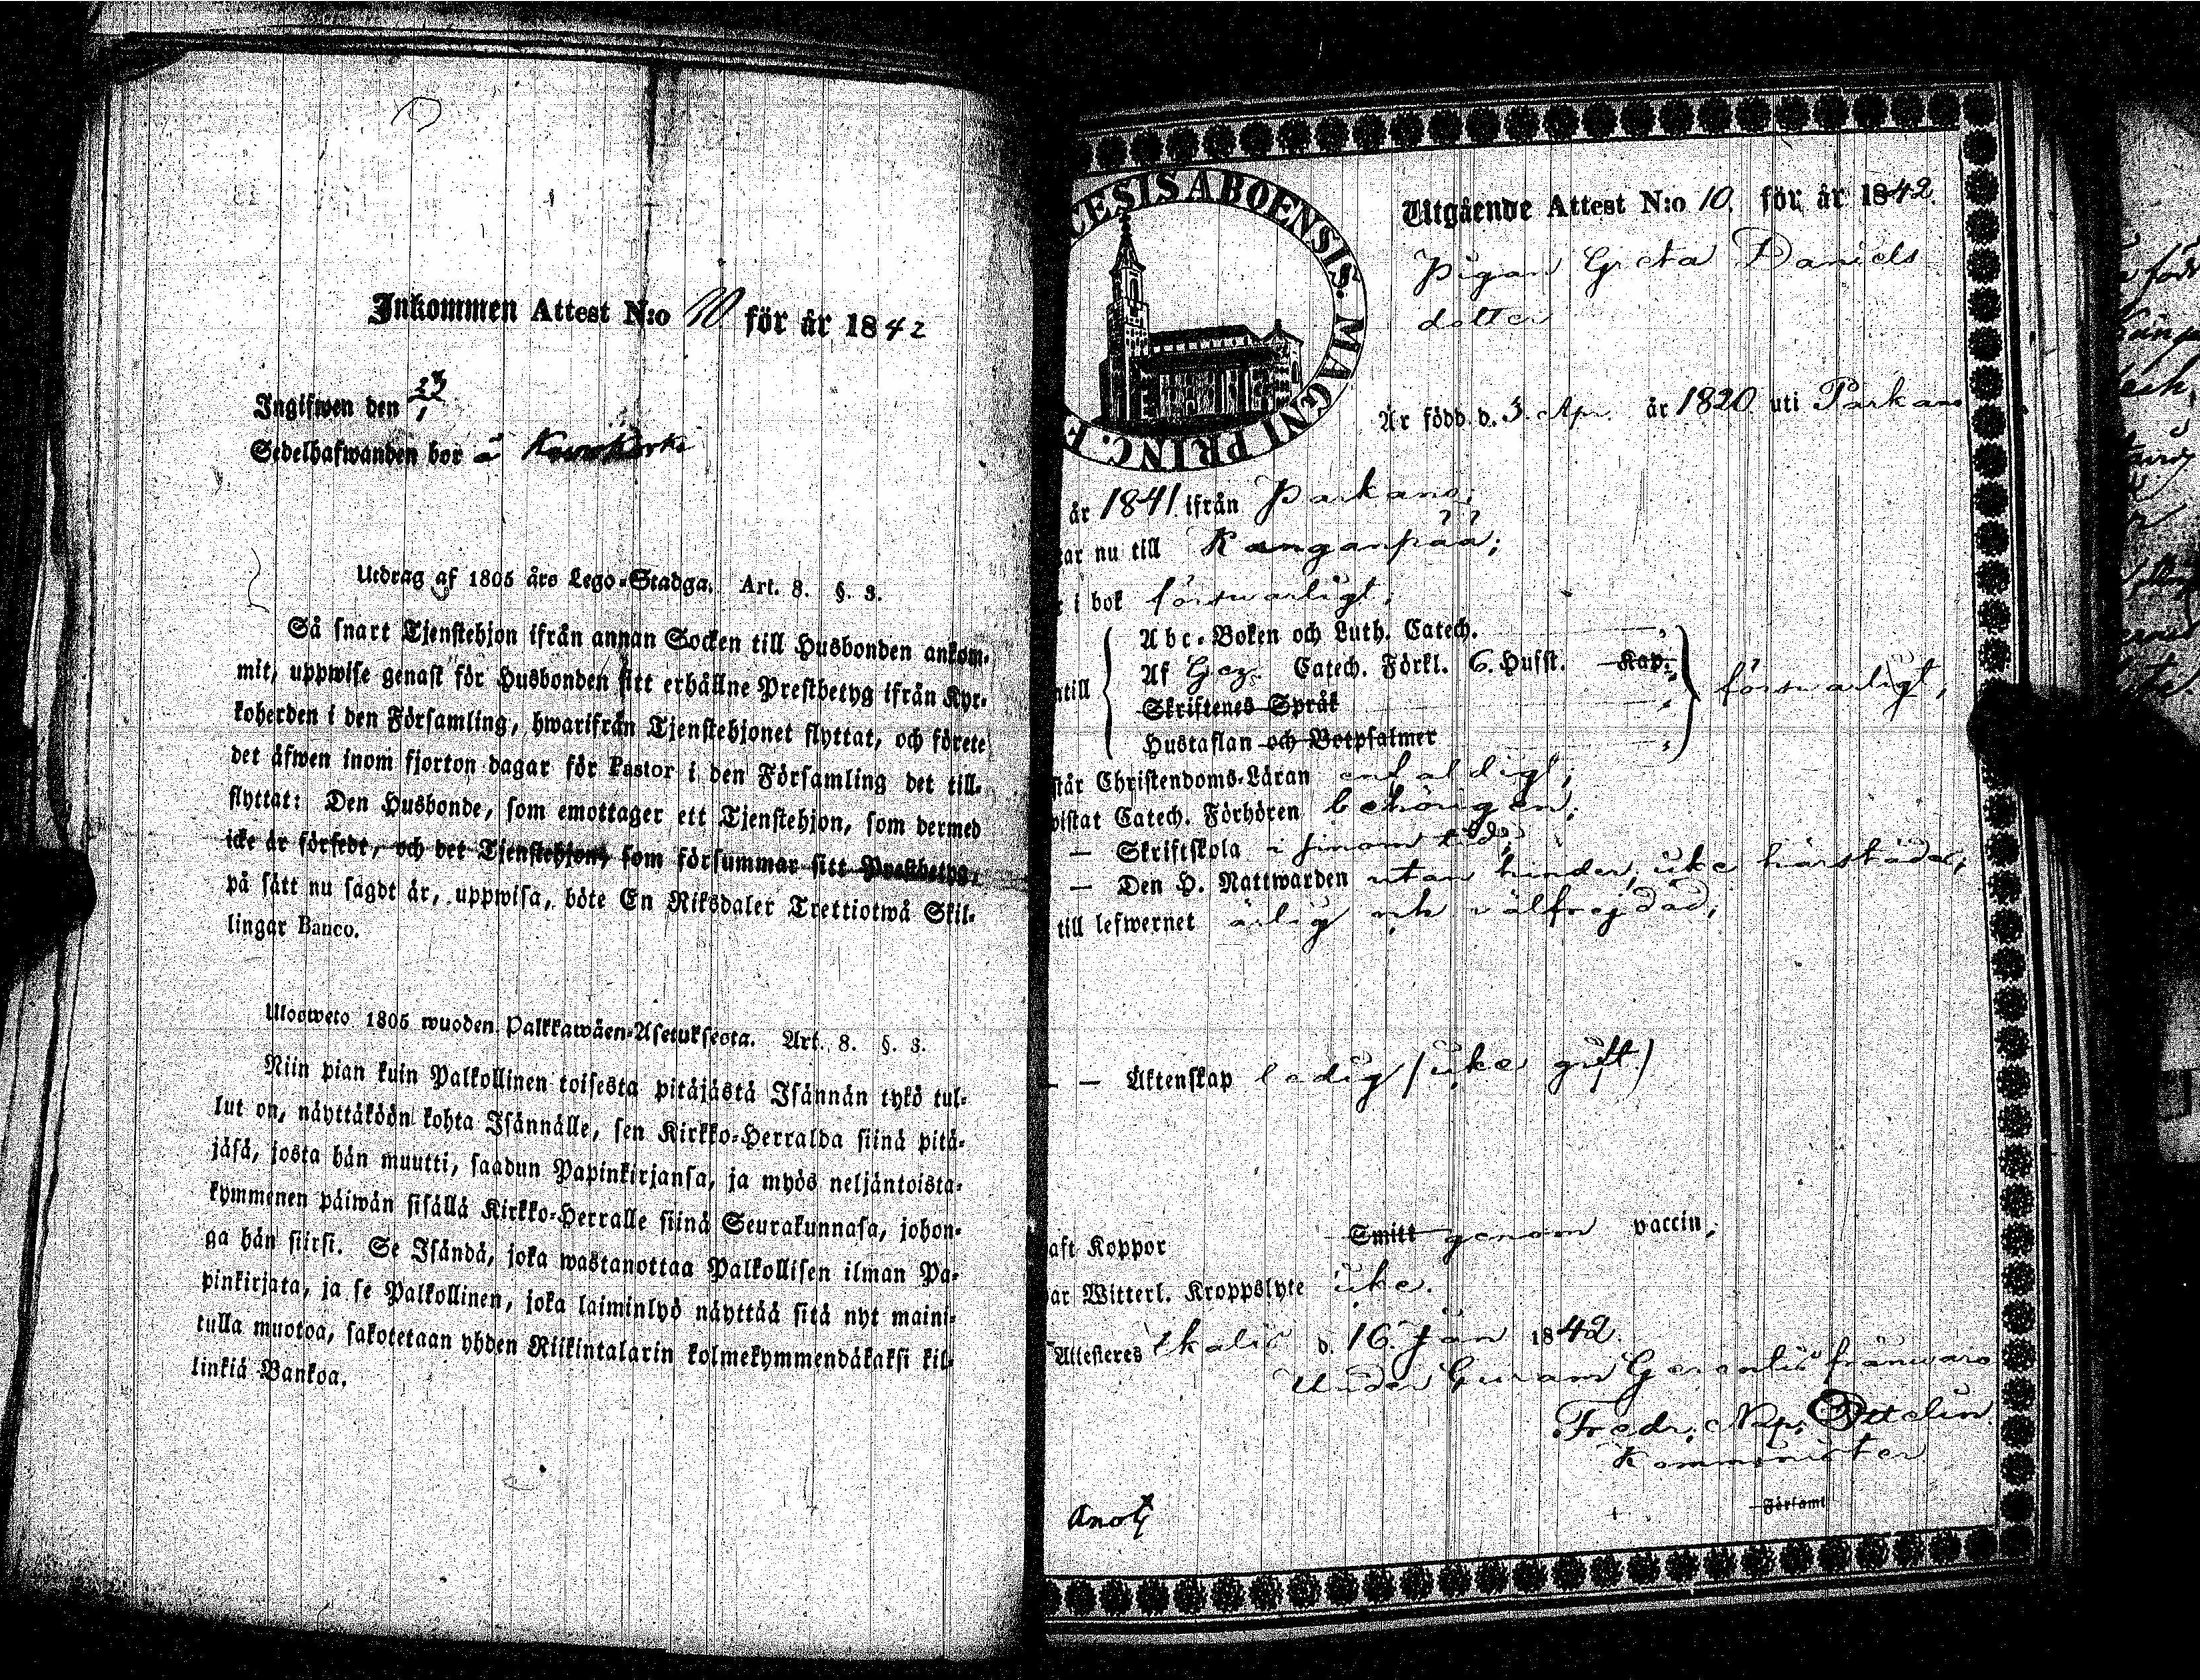 Inkommen Attest N:o 10 för år 1842
Ingifwen den 23/1
Sedelhafwanden bor å
Utdrag af 1805 års Lego-Stadga. Art. 8. §. 3.
Så snart Tjenstehjon ifrån annan Socken till Husbonden ankom-
mit, uppwise genast för Husbonden sitt erhållne Prestbetyg ifrån Kyr-
koherden i den Församling, hwarifrån Tjenstehjonet flyttat, och förete
det äfwen inom fjorton dagar för Pastor i den Församling det till-
flyttat: Den Husbonde, som emottager ett Tjenstehjon, som dermed
icke är försedt, och det Tjenstehjon, som försummar sitt Prestbetyg,
på sätt nu sagdt är, uppwisa, böte En Riksdaler Trettiotwå Skil-
lingar Banco.
Ulosweto 1805 wuoden Palkkawäen-Asetuksesta. Art. 8. §. 3.
Niin pian kuin Palkollinen toisesta pitäjästä Isännän tykö tul-
lut on, näyttäköön kohta Isännälle, sen Kirkko-Herralda siinä pitä-
jäsä, josta hän muutti, saadun Papinkirjansa, ja myös neljäntoista-
kymmenen päiwän sisällä Kirkko-Herralle siinä Seurakunnasa, johon-
ga hän siirsi. Se Isändä, joka wastanottaa Palkollisen ilman Pa-
pinkirjata, ja se Palkollinen, joka laiminlyö näyttää sitä nyt maini-
tulla muotoa, sakotetaan yhden Riikintalarin kolmekymmendäkaksi kil-
linkiä Bankoa.
CESIS ABOENSIS. MAGNI PRINC. F
Utgående Attest N:o 10. för år 1842.
Pigan Greta Daniels
dotter
Är född d. 3. Apr. år 1820. uti Parkano
år 1841 ifrån Parkano;
tar nu till Kanganpää;
r i bok försvarligt;
Abc-Boken och Luth. Catech.
Af Gez. Catech. Förkl. 6. Hufst. Kap.
ntill Skriftenes Språk
försvarligt;
Hustaflan och Botpsalmer
står Christendoms-Läran enfaldigt;
wistat Catech. Förhören behörigen;
— Skriftskola i sinom tid;
— Den H. Nattwarden utan hinder, icke härstädes;
till lefwernet ärlig och välfrejdad;
— — Äktenskap ledig (icke gift.)
aft Koppor Smitt genom vaccin;
ar Witterl. Kroppslyte icke.
Attesteres Ikalis d. 16. Jan 1842.
Under Curam Gerentis frånvaro
Fredr. Nap. Ottelin.
Kommunister
Församl
Anotj